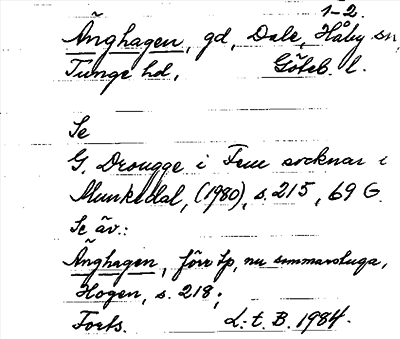 1-2.
Änghagen, gd, Dale, Håby sn,
Tunge hd, Göteb. l.
Se
G. Drougge i Fem socknar i
Munkedal, (1980), s. 215, 69 G.
Se äv.:
Änghagen, förr tp, nu sommarstuga,
Hogen, s. 218;
Forts. L: t. B. 1984.